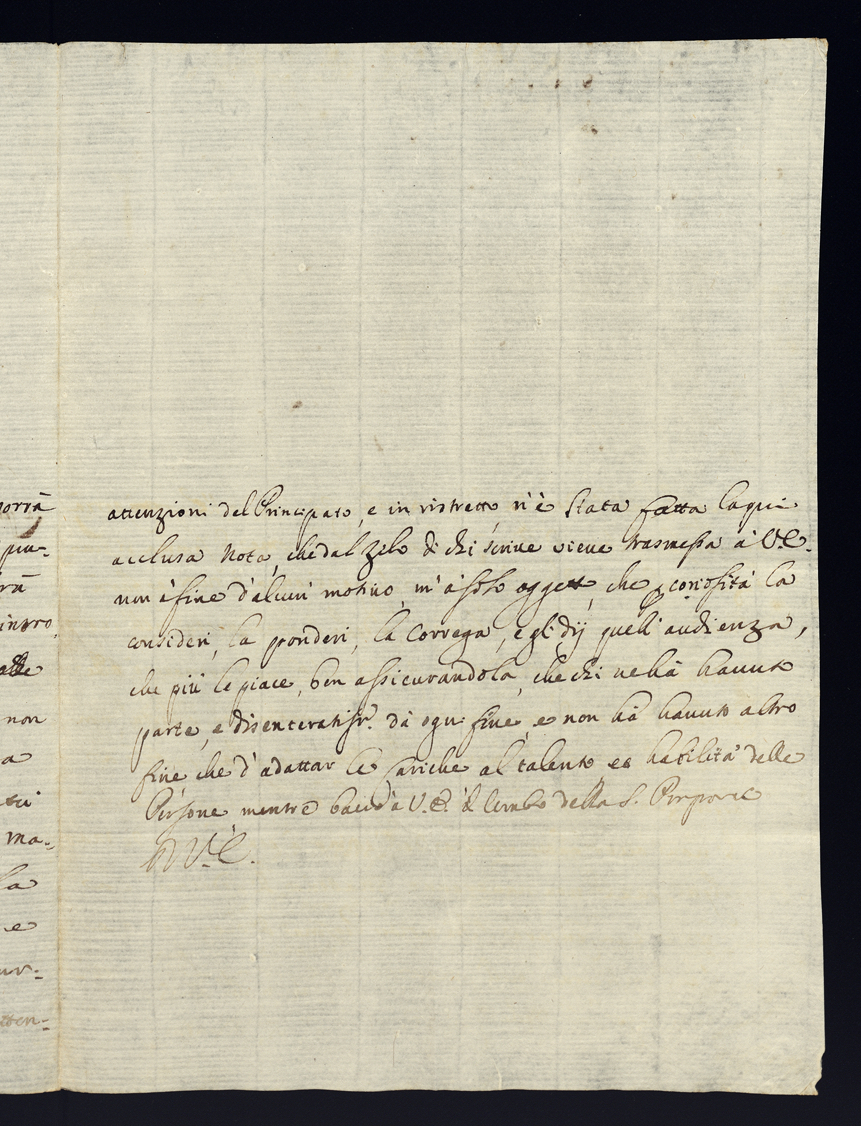 orrà
piu-
rà
intro-
alle
non
a
ma-
la
e
ur-
atten-
attenzioni del Principato, e in ristretto n'è stata fatta la qui
acclusa Nota, che dal Zelo di chi scrive viene trasmessa à V.E.
non à fine d'alcun motivo, m'à solo oggetto, che p curiosità la
consideri, la ponderi, la Correga, e gli dij quell'audienza,
che più le piace, ben assicurandola, che chi nehà havuto
parte, e disenteratissr. dà ogni fine, e non hà havuto altro
fine che d'adattar le Cariche al talento es habilità delle
Persone mentre bacio à V.E. il Lembo della S. Porpora
D V.E.